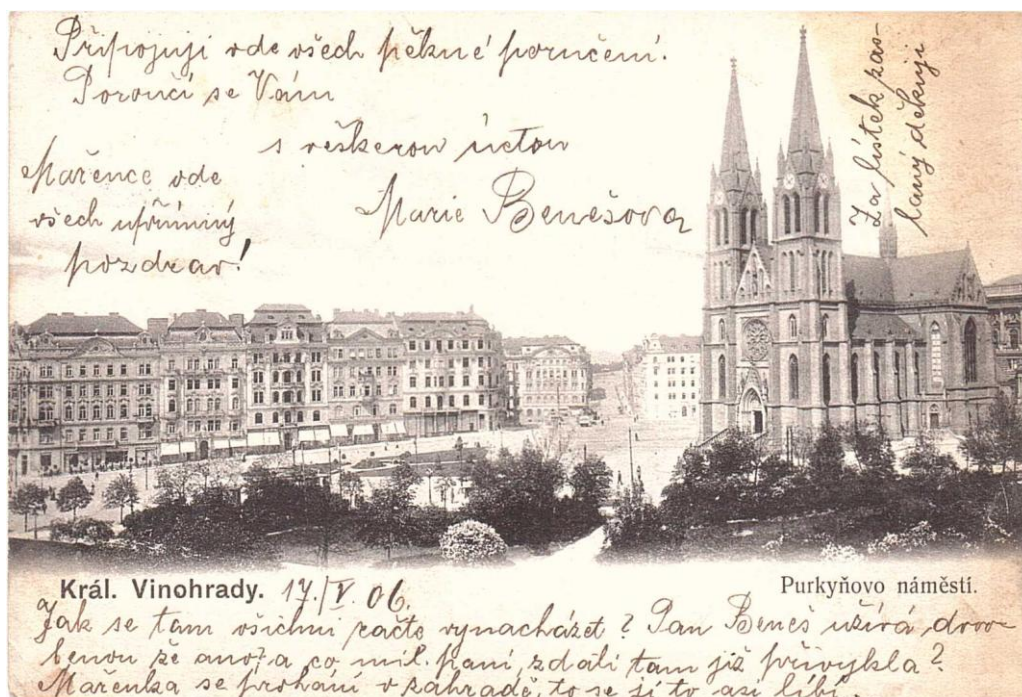 Připojuji vde všech pěkné poručení.
Poroučí se Vám
s veškerou úctou
Marie Benešova
Mařence vde
všech upřímný
pozdrav!
Za lístek pos-
laný děkuji
Král. Vinohrady. 17./V. 06.
Purkyňovo náměstí.
Jak se tam všichni ráčte vynacházet? Pan Beneš užívá drov
benou že ano? a co mil. paní, zdali tam již přivykla?
Mařenka se prohání v zahradě, to se jí to asi líbí.